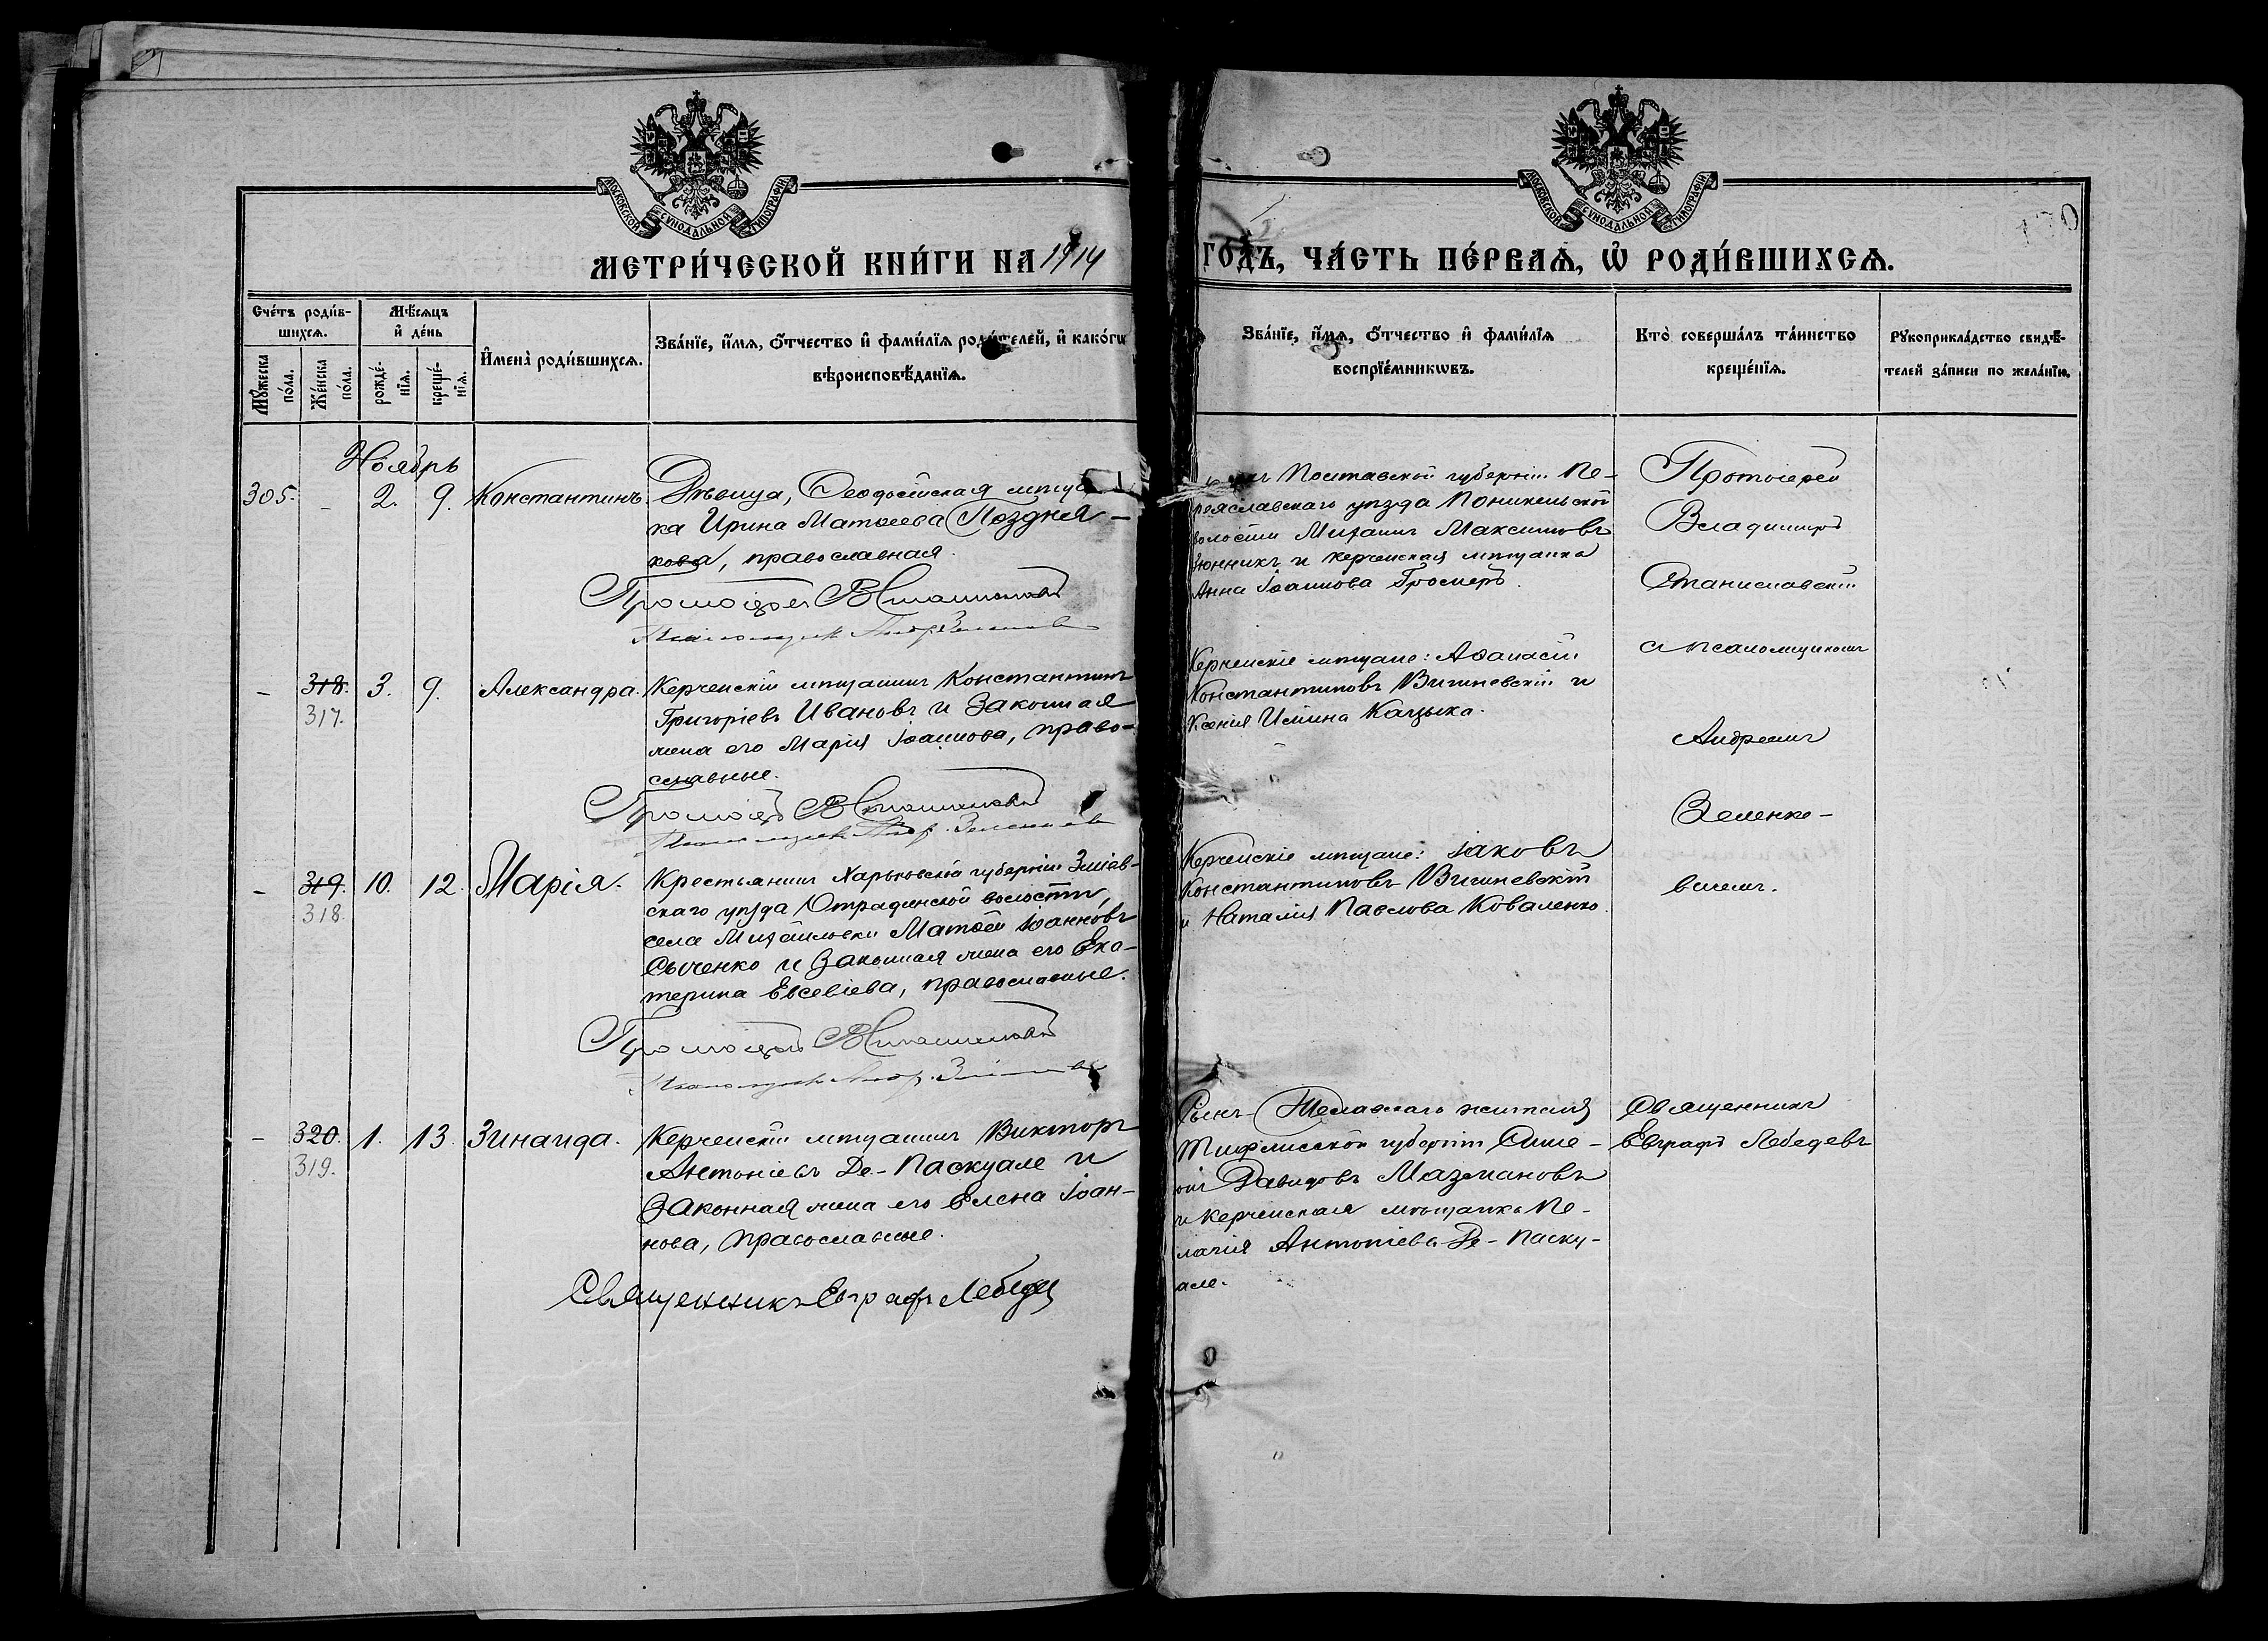 МОСКОВСКОЙ СѴНОДАЛЬНОЙ ТИПОГРАФІИ
МОСКОВСКОЙ СѴНОДАЛЬНОЙ ТИПОГРАФІИ
МЕТРИ́ЧЕСКОЙ КНИ́ГИ НА 1914 ГО́ДЪ, ЧА́СТЬ ПЕ́РВАѦ, Ѡ҆ РОДИ́ВШИХСѦ.
170
Сче́тъ роди́в-
шихсѧ.
Мꙋ́жеска по́ла.
Же́нска по́ла.
Мѣ́сѧцъ
и҆ де́нь
рожде́-
нїѧ.
креще́-
нїѧ.
И҆мена̀ роди́вшихсѧ.
Зва́нїе, и҆́мѧ, ѻ҆́тчество и҆ фами́лїѧ роди́телей, и҆ како́гѡ
вѣроисповѣ́данїѧ.
Зва́нїе, и҆́мѧ, ѻ҆́тчество и҆ фами́лїѧ
воспрїе́мникѡвъ.
Кто̀ соверша́лъ та́инство
креще́нїѧ.
Рꙋкоприкла́дство свидѣ́-
телей за́писи по жела́нїю.
Ноябрь
305. - 2. 9. Константинъ.
Дѣвица, Ѳеодосійская мѣщан
ка Ирина Матѳеева Поздня-
кова, православная.
Протоіерей В Станиславскій
Полтавской губерніи Пе-
реяславскаго уѣзда
волости Михаилъ Максимовъ
и керченская мѣщанка
Анна Іоаннова
Протоіерей
Владиміръ
Станиславскій
съ псаломщикомъ
Андреемъ
Зеленке-
вичемъ.
- 318. 3. 9. Александра.
317.
Керченскій мѣщанинъ Константинъ
Григоріевъ Ивановъ и законная
жена его Марія Іоаннова, право-
славные.
Протоіерей В Станиславскій
Керченскіе мѣщане: Аѳанасій
Константиновъ Вишневскій и
Ксенія Ильина
- 319. 10. 12. Марія.
318.
Крестьянинъ Харьковской губерніи Зміев-
скаго уѣзда Отрадинской волости,
села Михайловки Матѳей Іоанновъ
Сыченко и законная жена его Ека-
терина Евсевіева, православные.
Протоіерей В Станиславскій
Керченскіе мѣщане: Іаковъ
Константиновъ Вишневскій
и Наталія Павлова Коваленко.
- 320. 1. 13. Зинаида.
319.
Керченскій мѣщанинъ Викторъ
Антоніевъ Де-Паскуале и
законная жена его Елена Іоан-
нова, православные.
Священникъ Евграфъ Лебедев
Сынъ Телавскаго жителя
Тифлисской губерніи Симе-
онъ Давидовъ Мазмановъ
и керченская мѣщанка Пе-
лагія Антоніева Де-Паску-
але.
Священникъ
Евграфъ Лебедевъ